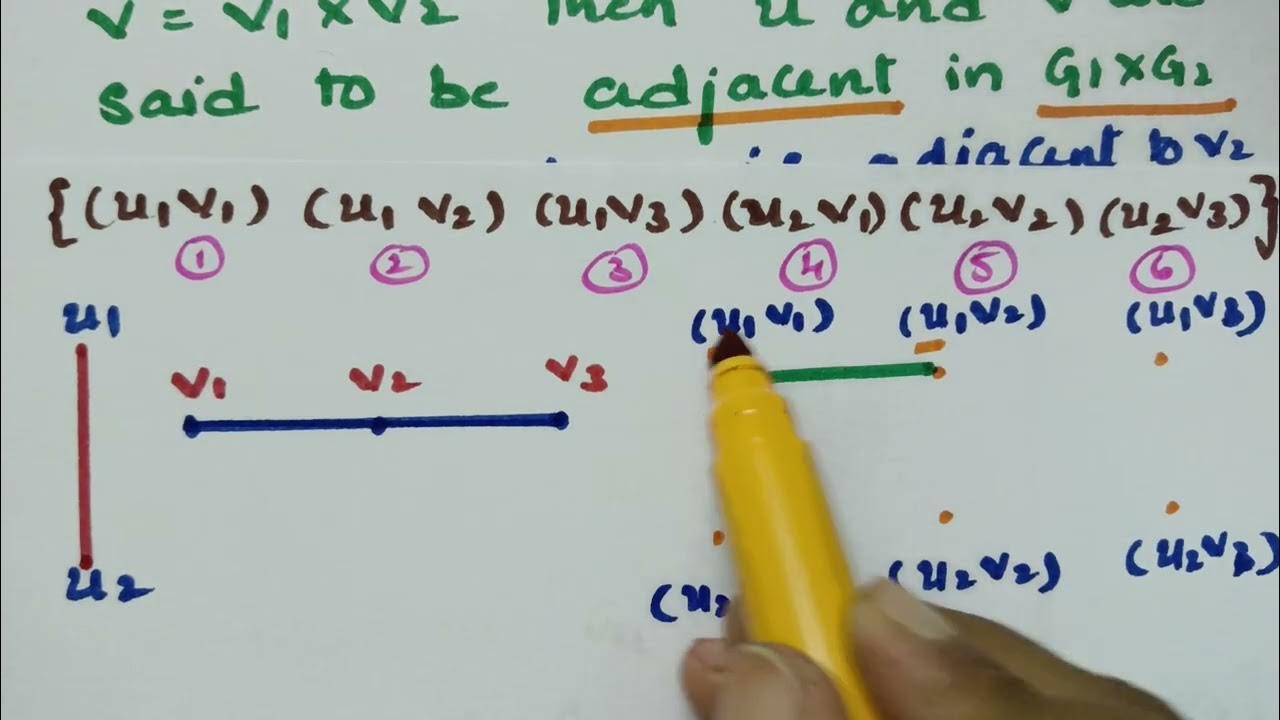 V = V1 × V2 Then u and v are
said to be adjacent in G1×G2
adjacent to v2
{(u1v1) (u1 v2) (u1v3) (u2 v1) (u2v2) (u2v3)}
1 2 3 4 5 6
u1 (u1v1) (u1v2) (u1v3)
v1 v2 v3
u2 (u2 (u2v2) (u2v3)